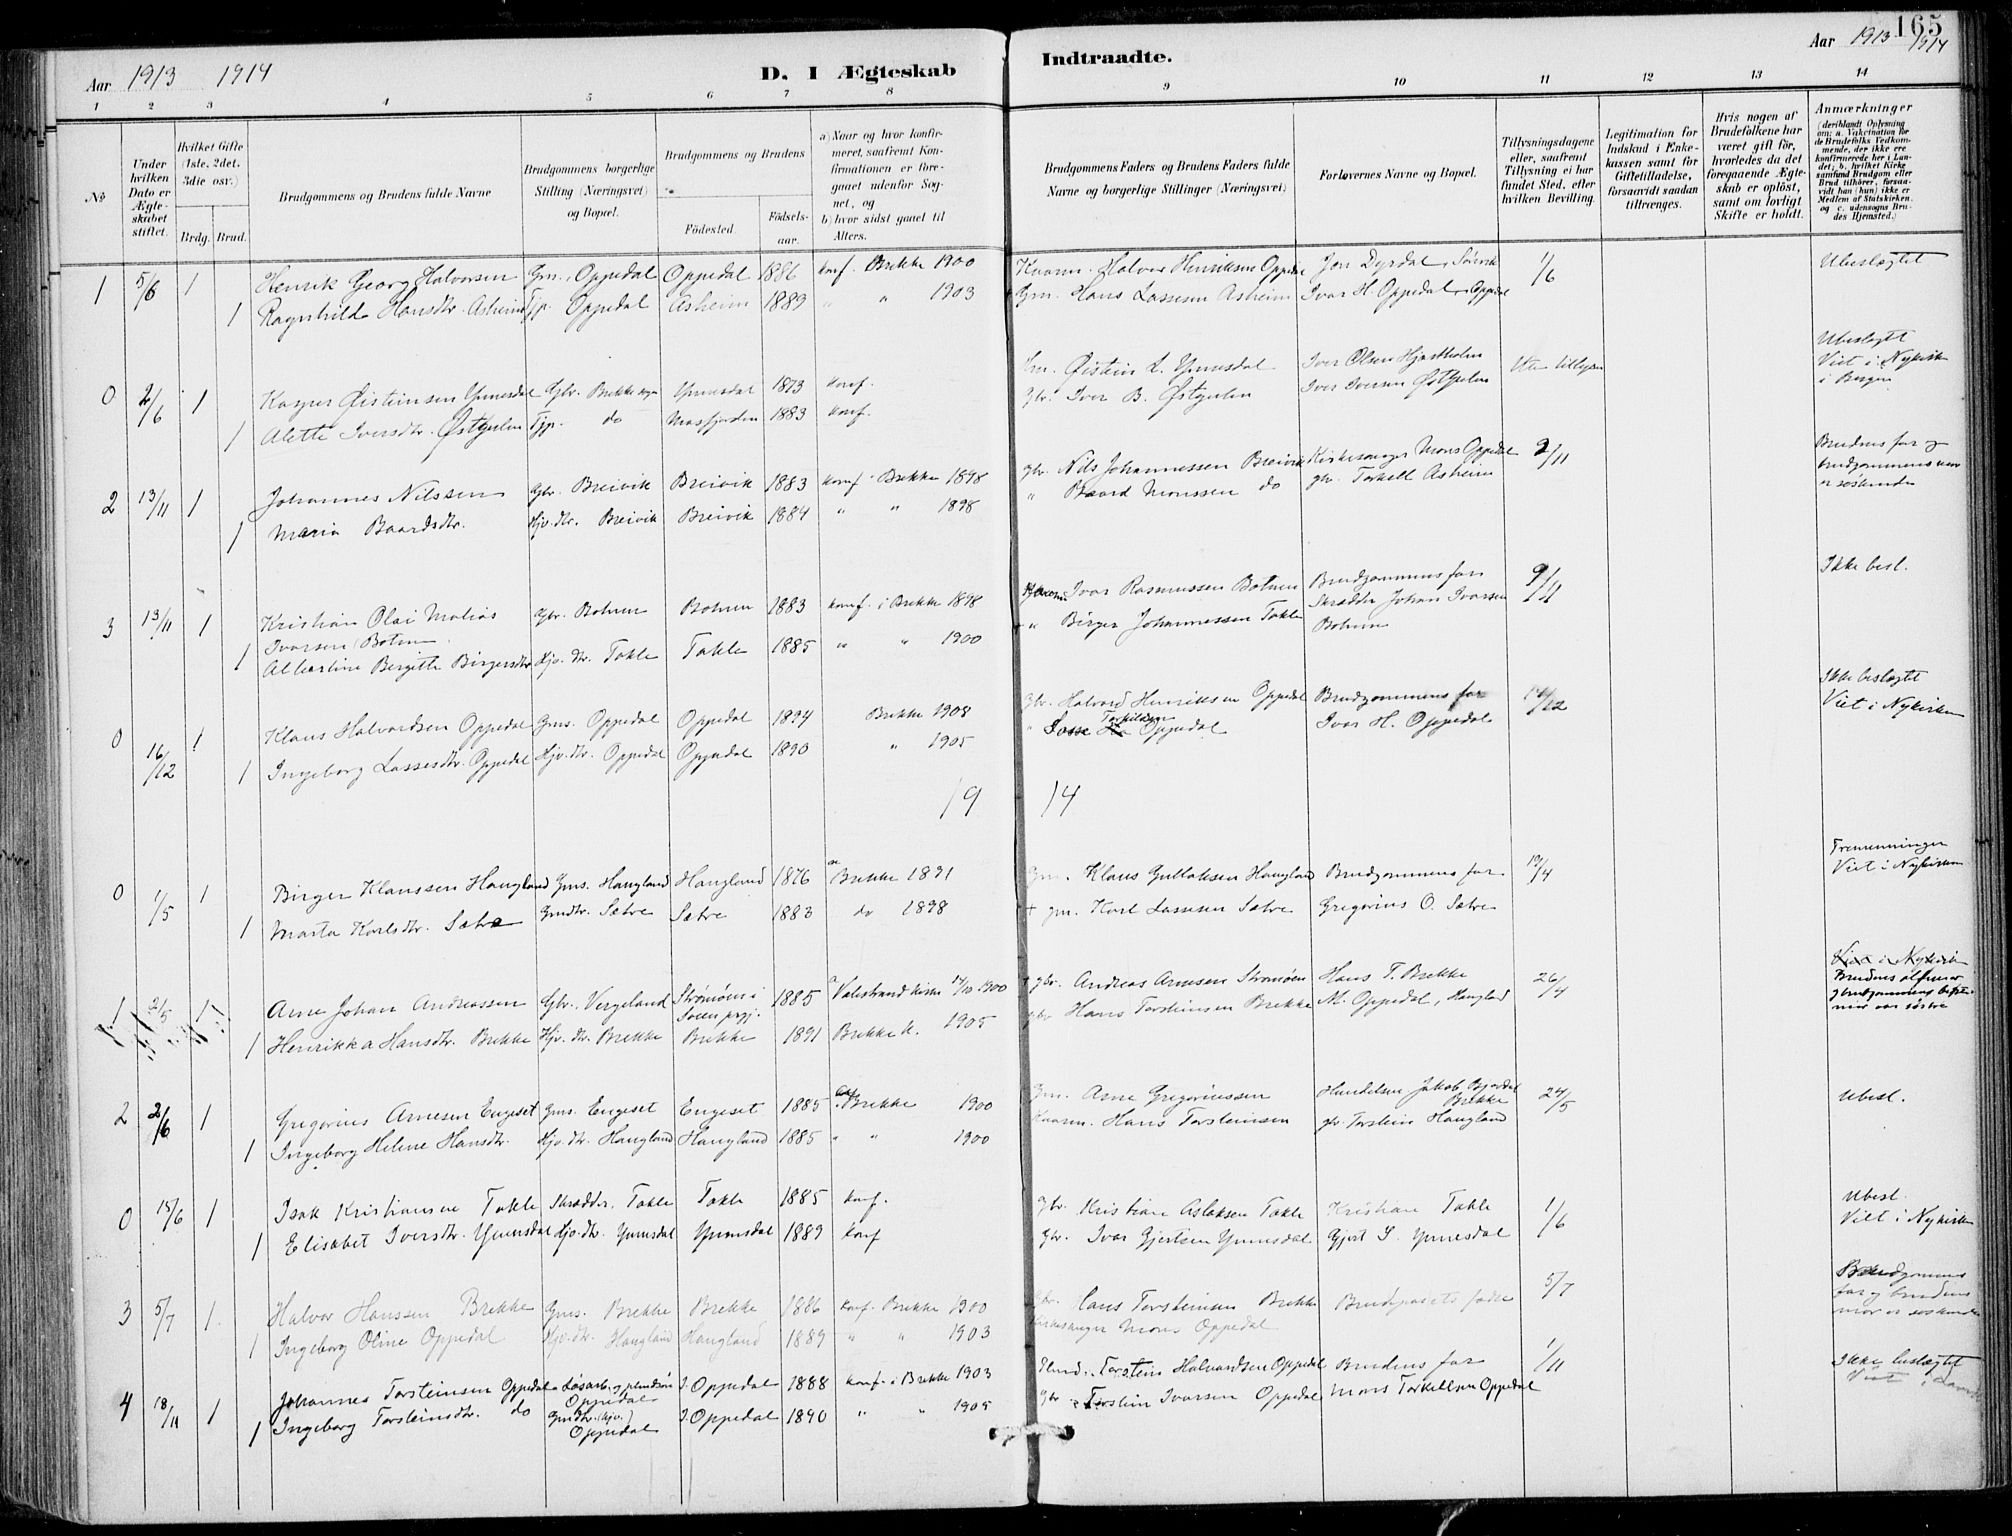 165
Aar 1913 1914
D. I Ægteskab
Indtraadte.
Aar 1913 1914
1 2 3 4 5 6 7 8 9 10 11 12 13 14
No
Under hvilken Dato er Ægteskabet stiftet.
Hvilket Gifte (1ste, 2det, 3die osv.)
Brdg. Brud.
Brudgommens og Brudens fulde Navne
Brudgommens borgerlige Stilling (Næringsvei) og Bopæl.
Brudgommens og Brudens
Födested.
Födsels-aar.
a) Naar og hvor konfirmeret, saafremt Konfirmationen er foregaaet udenfor Sognet, og
b) hvor sidst gaaet til Alters.
Brudgommens Faders og Brudens Faders fulde Navne og borgerlige Stillinger (Næringsvei)
Forloveres Navne og Bopæl.
Tillysningsdagene eller, saafremt Tillysning ei har fundet Sted, efter hvilken Bevilling.
Legitimation for Indskud i Enkekassen samt for Giftetilladelse, forsaavidt saadan tiltrænges.
Hvis nogen af Brudefolkene har været gift för, hvorledes da det foregaaende Ægteskab er oplöst, samt om lovligt Skifte er holdt.
Anmærkninger
(deriblandt Oplysning om: a. Vakcination for de Brudefolks Vedkommende, der ikke ere konfirmerede her i Landet; b. hvilket Kirkesamfund Brudgom eller Brud tilhörer, forsaavidt han (hun) ikke er Medlem af Statskirken, og c. udensogns Brudes Hjemsted.)
1 5/6 1 Henrik Georg Halvorsen Gm. Oppedal Oppedal 1886 konf. Brekke 1900 Kaarm. Halvor Henriksen Oppedal Jon Dyrdal, Sörvik 1/6 Ubeslægtet
1 Ragnhilda Hansdtr. Asheim Tjp. Oppedal Asheim 1889 " " 1903 Gm. Hans Lassesen Asheim Ivar H. Oppedal, Oppedal
0 2/6 1 Kasper Øisteinsen Ynnesdal Gbr. Brekke sogn Ynnesdal 1873 konf. Øistein L. Ynnesdal Iver Olsen Hjortholm Ubeslægt Viet i Nykirken i Bergen
1 Alette Iversdtr. Østgulen Tjp. do Masfjorden 1883 konf. Gbr. Iver B. Østgulen Iver Iversen Østgulen
2 13/11 1 Johannes Nilssen Gbr. Breivik Breivik 1883 konf. i Brekke 1898 gbr. Nils Johannessen Breivik Kirkesanger Mons Oppedal 2/11 Brudens far og brudgommens mor er søskende
1 Maria Baardsdtr. Hjv. dtr. Breivik Breivik 1884 " " 1898 " Baard Monssen do gbr. Torkell Asheim
3 13/11 1 Kristian Olai Matias Ivarsen Botnen Gbr. Botnen Botnen 1883 konf. i Brekke 1898 Ivar Rasmussen Botnen Brudgommens far 9/11 Ikke besl.
1 Albertine Bergitte Birgersdtr. Hjv. dtr. Takle Takle 1885 " " 1900 " Birger Johannessen Takle Skrædder Johan Ivarsen Botnen
0 16/12 1 Klaus Halvardsen Oppedal Gms. Oppedal Oppedal 1894 Brekke 1908 Gbr. Halvard Henriksen Oppedal Brudgommens far 14/12 Ikke beslægtet Viet i Nykirken
1 Ingeborg Lassesdtr. Oppedal Hjv. dtr. Oppedal Oppedal 1890 " 1905 " Lasse Torkildsen Oppedal Ivar H. Oppedal
19 14
0 1/5 1 Birger Klaussen Haugland Gms. Haugland Haugland 1876 Brekke 1891 Gm. Klaus Gullaksen Haugland Brudgommens far 19/4 Tremenninger Viet i Nykirken
1 Marta Karlsdtr. Sætre Gmdtr. Sætre Sætre 1883 do 1898 + gm. Karl Lassesen Sætre Gregorius O. Sætre
1 2/5 1 Arne Johan Andreassen Gbr. Vergeland Strømøen i 1885 Valestrand kirke 14/10 1900 + gbr. Andreas Arnesen Strømøen Hans T. Brekke 26/4 Viet i Nykirken
1 Henrikka Hansdtr. Brekke Hjv. dtr. Brekke Brekke 1891 Brekke k. 1905 gbr. Hans Torsteinsen Brekke M. Oppedal, Haugland
2 2/6 1 Gregorius Arnesen Engeset Gms. Engeset Engeset 1885 Brekke 1900 Gm. Arne Gregoriussen Handelsm. Jakob Bjordal Brekke 24/5 Ubesl.
1 Ingeborg Helene Hansdtr. Hjv. dtr. Haugland Haugland 1885 " " 1900 Kaarm. Hans Torsteinsen gbr. Torstein Haugland
0 15/6 1 Isak Kristiansen Takle Skrædder, Takle Takle 1885 konf. Gbr. Kristian Aslaksen Takle Kristian Takle 1/6 Ubesl. Viet i Nykirken
1 Elisabet Iversdtr. Ynnesdal Hjv. dtr. Ynnesdal Ynnesdal 1889 konf Gbr. Ivar Gjertsen Ynnesdal Gjert I. Ynnesdal
3 5/7 1. Halvor Hanssen Brekke Gms. Brekke Brekke 1886 konf. Brekke 1900 Gbr. Hans Torsteinsen Brekke Brudeparets fædre 5/7 Brudgommens far og brudens mor er søskende
1 Ingeborg Oline Oppedal Hjv. dtr. Haugland Haugland 1889 " " 1903 Kirkesanger Mons Oppedal
4 18/11 1 Johannes Torsteinsen Oppedal Oppedal I. Oppedal 1888 konf. i Brekke 1903 Torstein Halvardsen Oppedal Brudens far 1/11 Ikke beslægtet
1 Ingeborg Torsteinsdtr. do Gmdtr. (hjv.) Oppedal I. Oppedal 1890 " " 1905 Gbr. Torstein Ivarsen Oppedal Mons Torkellsen Oppedal